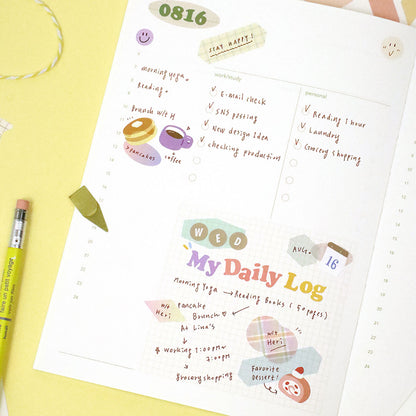 0816
STAY HAPPY!
morning yoga
Reading
Brunch w/ H
pancakes
coffee
work/study
E-mail check
SNS posting
New design Idea
checking production
personal
Reading 1 hour
Laundry
Grocery shopping
WED
AUG.
16
My Daily Log
Morning Yoga → Reading Books (50 pages)
w/ Heri
pancake
Brunch
At Lina's
working 1:00PM~
7:00PM
Grocery shopping
w/ Heri
Favorite
Dessert!
faire un petit voyage